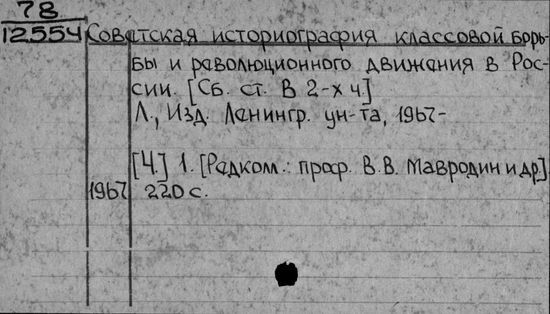 78
12554 Советская историография классовой борь-
бы и революционного движения в Рос-
сии. [Сб. ст. В 2-х ч.]
Л., Изд. Ленингр. ун-та, 1967-
[Ч.] 1. [Редкол.: проф. В.В. Мавродин и др.]
1967 220 с.